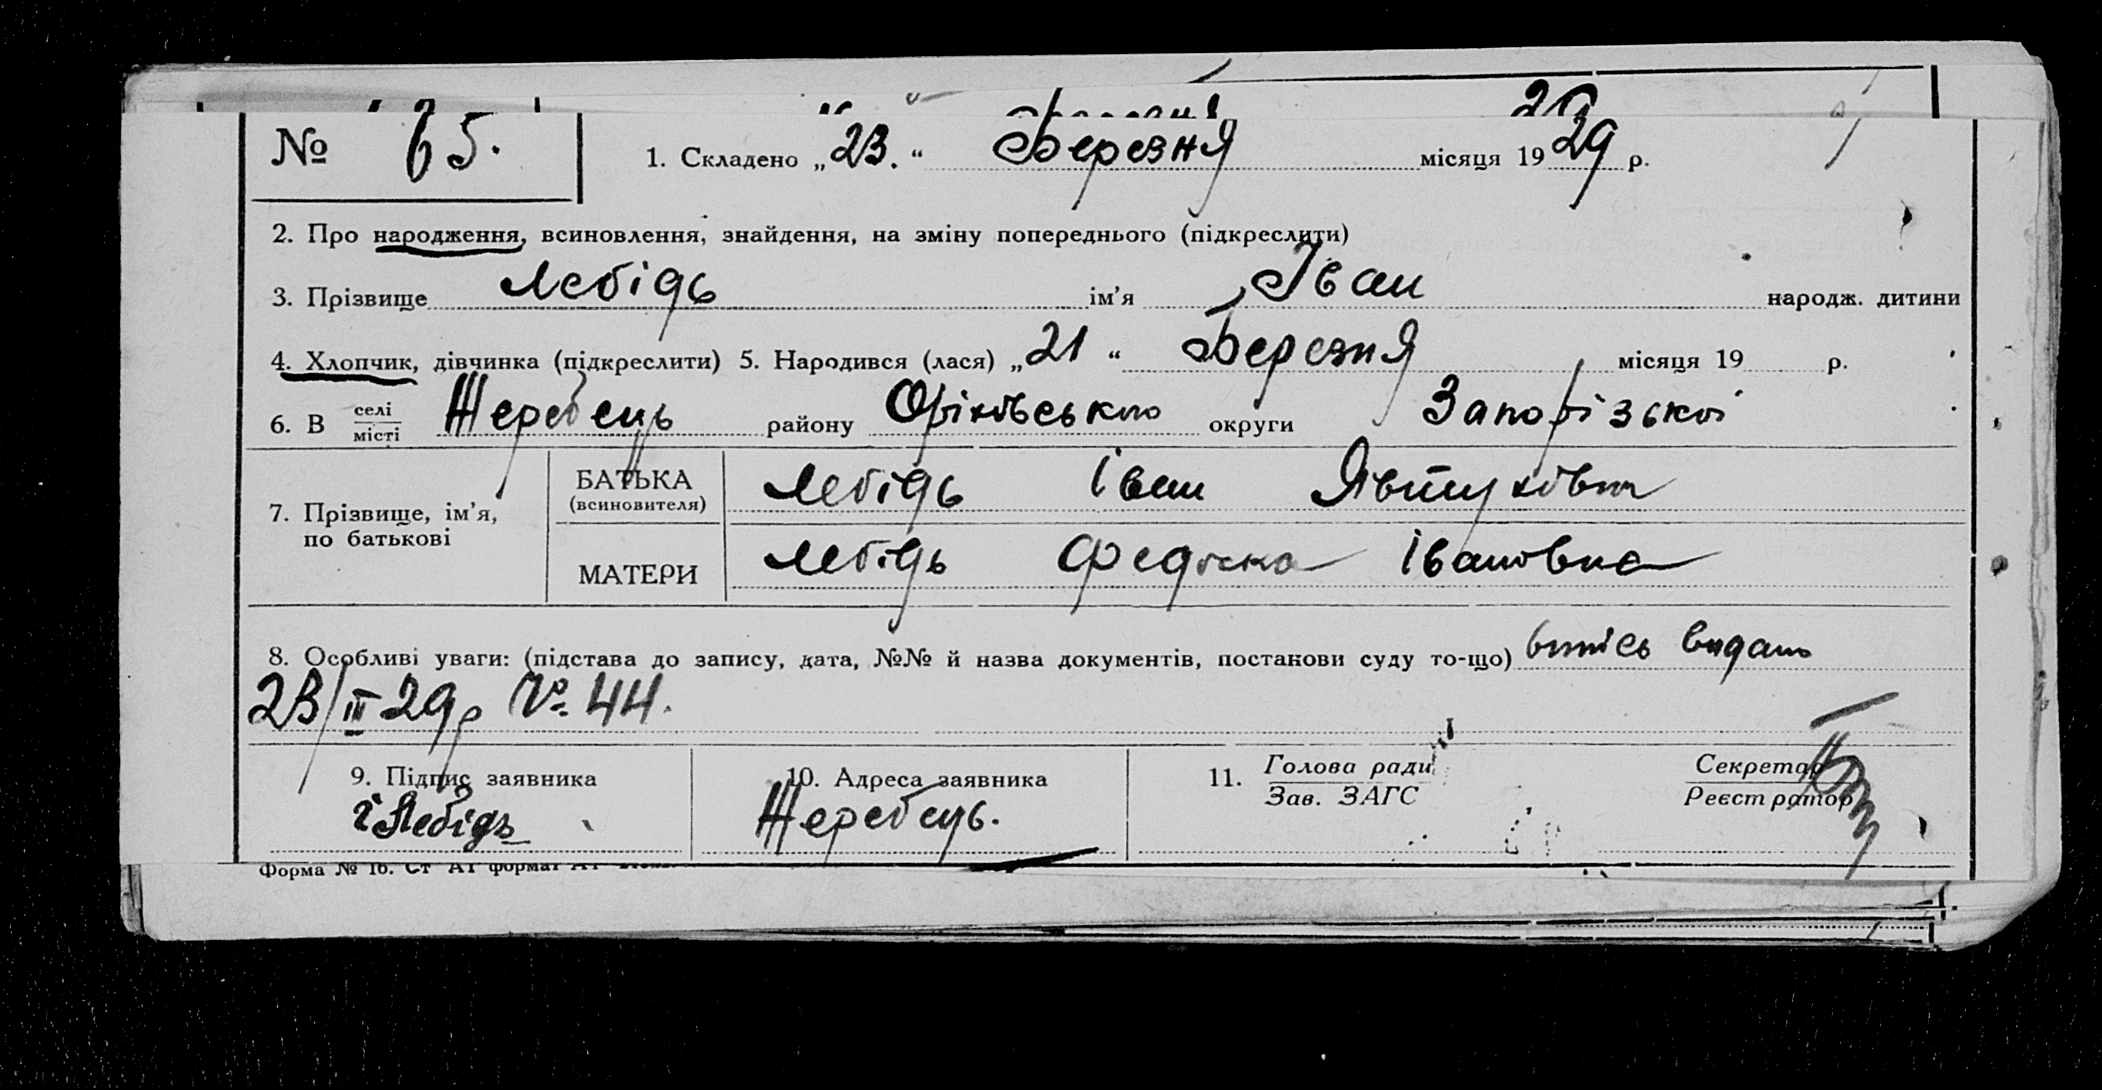 № 65. 1. Складено „23.“ Березня місяця 1929 р.
2. Про народження, всиновлення, знайдення, на зміну попереднього (підкреслити)
3. Прізвище Лебідь ім’я Іван народж. дитини
4. Хлопчик, дівчинка (підкреслити) 5. Народився (лася) „21“ Березня місяця 19 р.
6. В селі/місті Жеребець району Оріхівського округи Запорізької
7. Прізвище, ім’я, по батькові
БАТЬКА (всиновителя) Лебідь Іван Явтухович
МАТЕРИ Лебідь Федоска Івановна
8. Особливі уваги: (підстава до запису, дата, №№ й назва документів, постанови суду то-що) витіс видано
23/III 29р № 44.
9. Підпис заявника 10. Адреса заявника 11. Голова ради Секретар
Зав. ЗАГС Реєстратор
І Лебідь Жеребець.
Форма № 16. Ст А1 формат А4